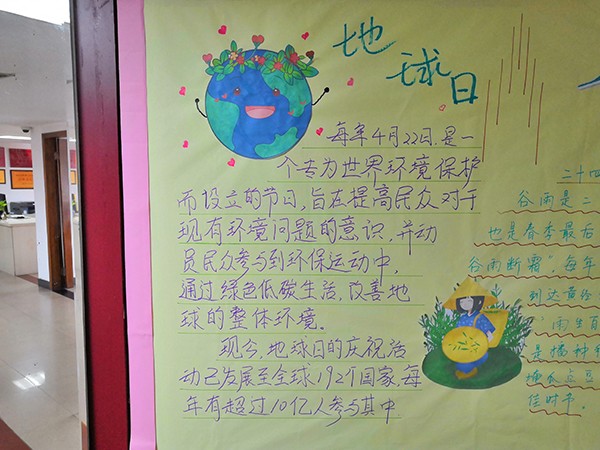 地球日
每年4月22日,是一
个专为世界环境保护
而设立的节日,旨在提高民众对于
现有环境问题的意识,并动
员民众参与到环保运动中,
通过绿色低碳生活,改善地
球的整体环境。
现今,地球日的庆祝活
动已发展至全球192个国家,每
年有超过10亿人参与其中
二十四
谷雨是二
也是春季最后
谷雨断霜”,每年
到达黄经
“雨生百
是播种
种瓜点豆
佳时节.